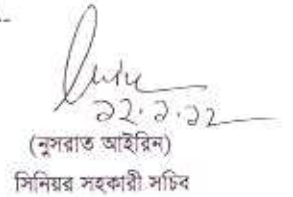 ২২.৯.২২
(নুসরাত আইরিন)
সিনিয়র সহকারী সচিব